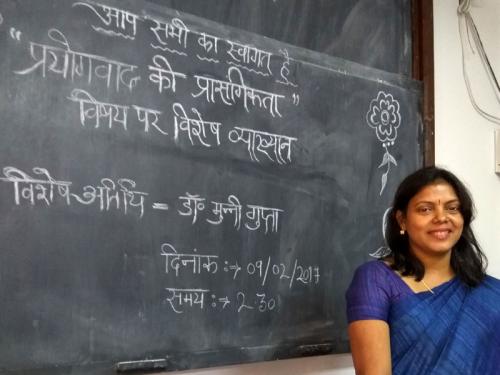 आप सभी का स्वागत है
“प्रयोगवाद की प्रासंगिकता”
विषय पर विशेष व्याख्यान
विशेष अतिथि = डॉ॰ मुन्नी गुप्ता
दिनांक :→ 09/02/2017
समय :→ 2:30